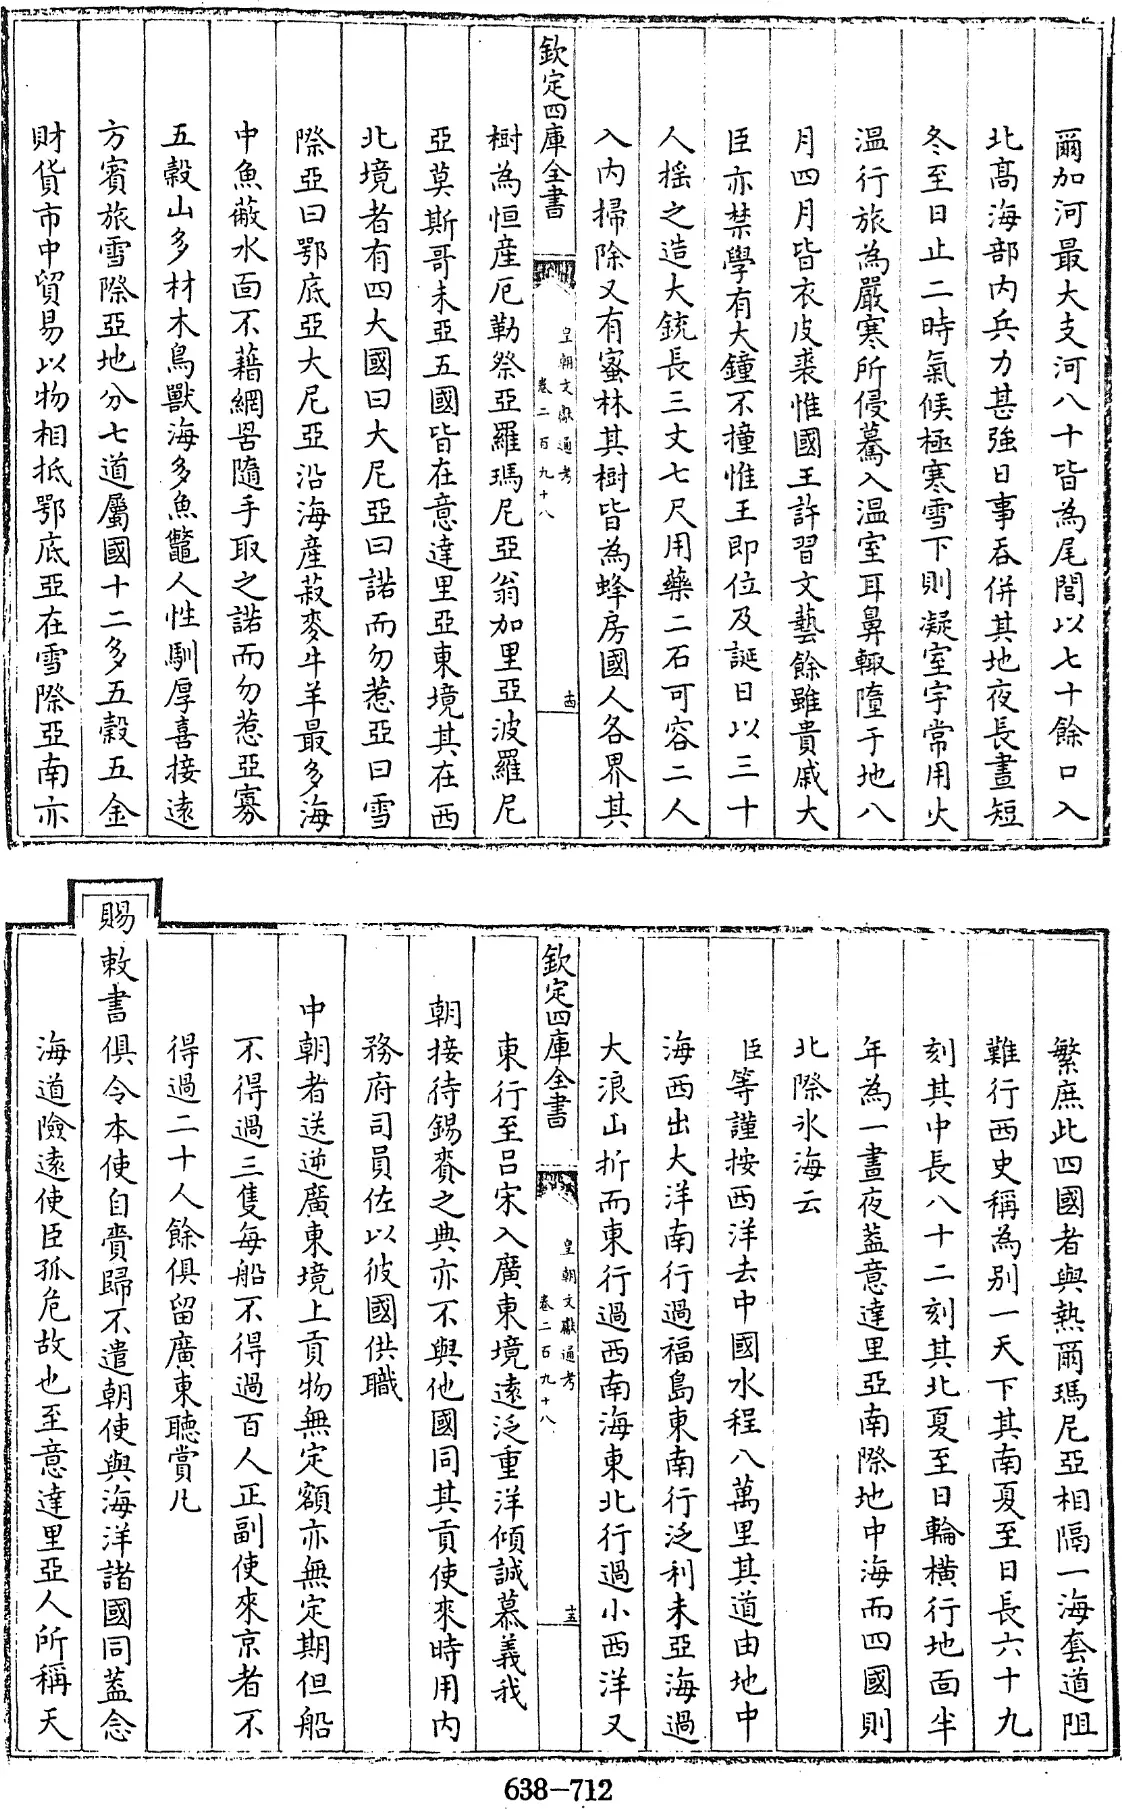 爾加河最大支河八十皆為尾閭以七十餘口入
北髙海部内兵力甚强日事吞併其地夜長晝短
冬至日止二時氣候極寒雪下則凝室宇常用火
温行旅為嚴寒所侵驀入温室耳鼻輙墮于地八
月四月皆衣皮裘惟國王許習文藝餘雖貴戚大
臣亦禁學有大鐘不撞惟王即位及誕日以三十
人揺之造大銃長三丈七尺用藥二石可容二人
入内掃除又有蜜林其樹皆為蜂房國人各界其
欽定四庫全書
皇朝文獻通考
卷二百九十八
十四
樹為恒産厄勒祭亞羅瑪尼亞翁加里亞波羅尼
亞莫斯哥未亞五國皆在意達里亞東境其在西
北境者有四大國曰大尼亞曰諾而勿惹亞曰雪
際亞曰鄂底亞大尼亞沿海産菽麥牛羊最多海
中魚蔽水面不藉網罟隨手取之諾而勿惹亞寡
五榖山多材木鳥獸海多魚鼈人性馴厚喜接逺
方賓旅雪際亞地分七道屬國十二多五榖五金
財貨市中貿易以物相抵鄂底亞在雪際亞南亦
繁庶此四國者與熱爾瑪尼亞相隔一海套道阻
難行西史稱為别一天下其南夏至日長六十九
刻其中長八十二刻其北夏至日輪横行地面半
年為一晝夜葢意達里亞南際地中海而四國則
北際氷海云
臣等謹按西洋去中國水程八萬里其道由地中
海西出大洋南行過福島東南行泛利未亞海過
大浪山折而東行過西南海東北行過小西洋又
欽定四庫全書
皇朝文獻通考
卷二百九十八
十五
東行至吕宋入廣東境逺泛重洋傾誠慕義我
朝接待錫賚之典亦不與他國同其貢使來時用内
務府司員佐以彼國供職
中朝者送逆廣東境上貢物無定額亦無定期但船
不得過三隻每船不得過百人正副使來京者不
得過二十人餘俱留廣東聽賞凡
賜敕書俱令本使自賫歸不遣朝使與海洋諸國同葢念
海道險逺使臣孤危故也至意達里亞人所稱天
638-712